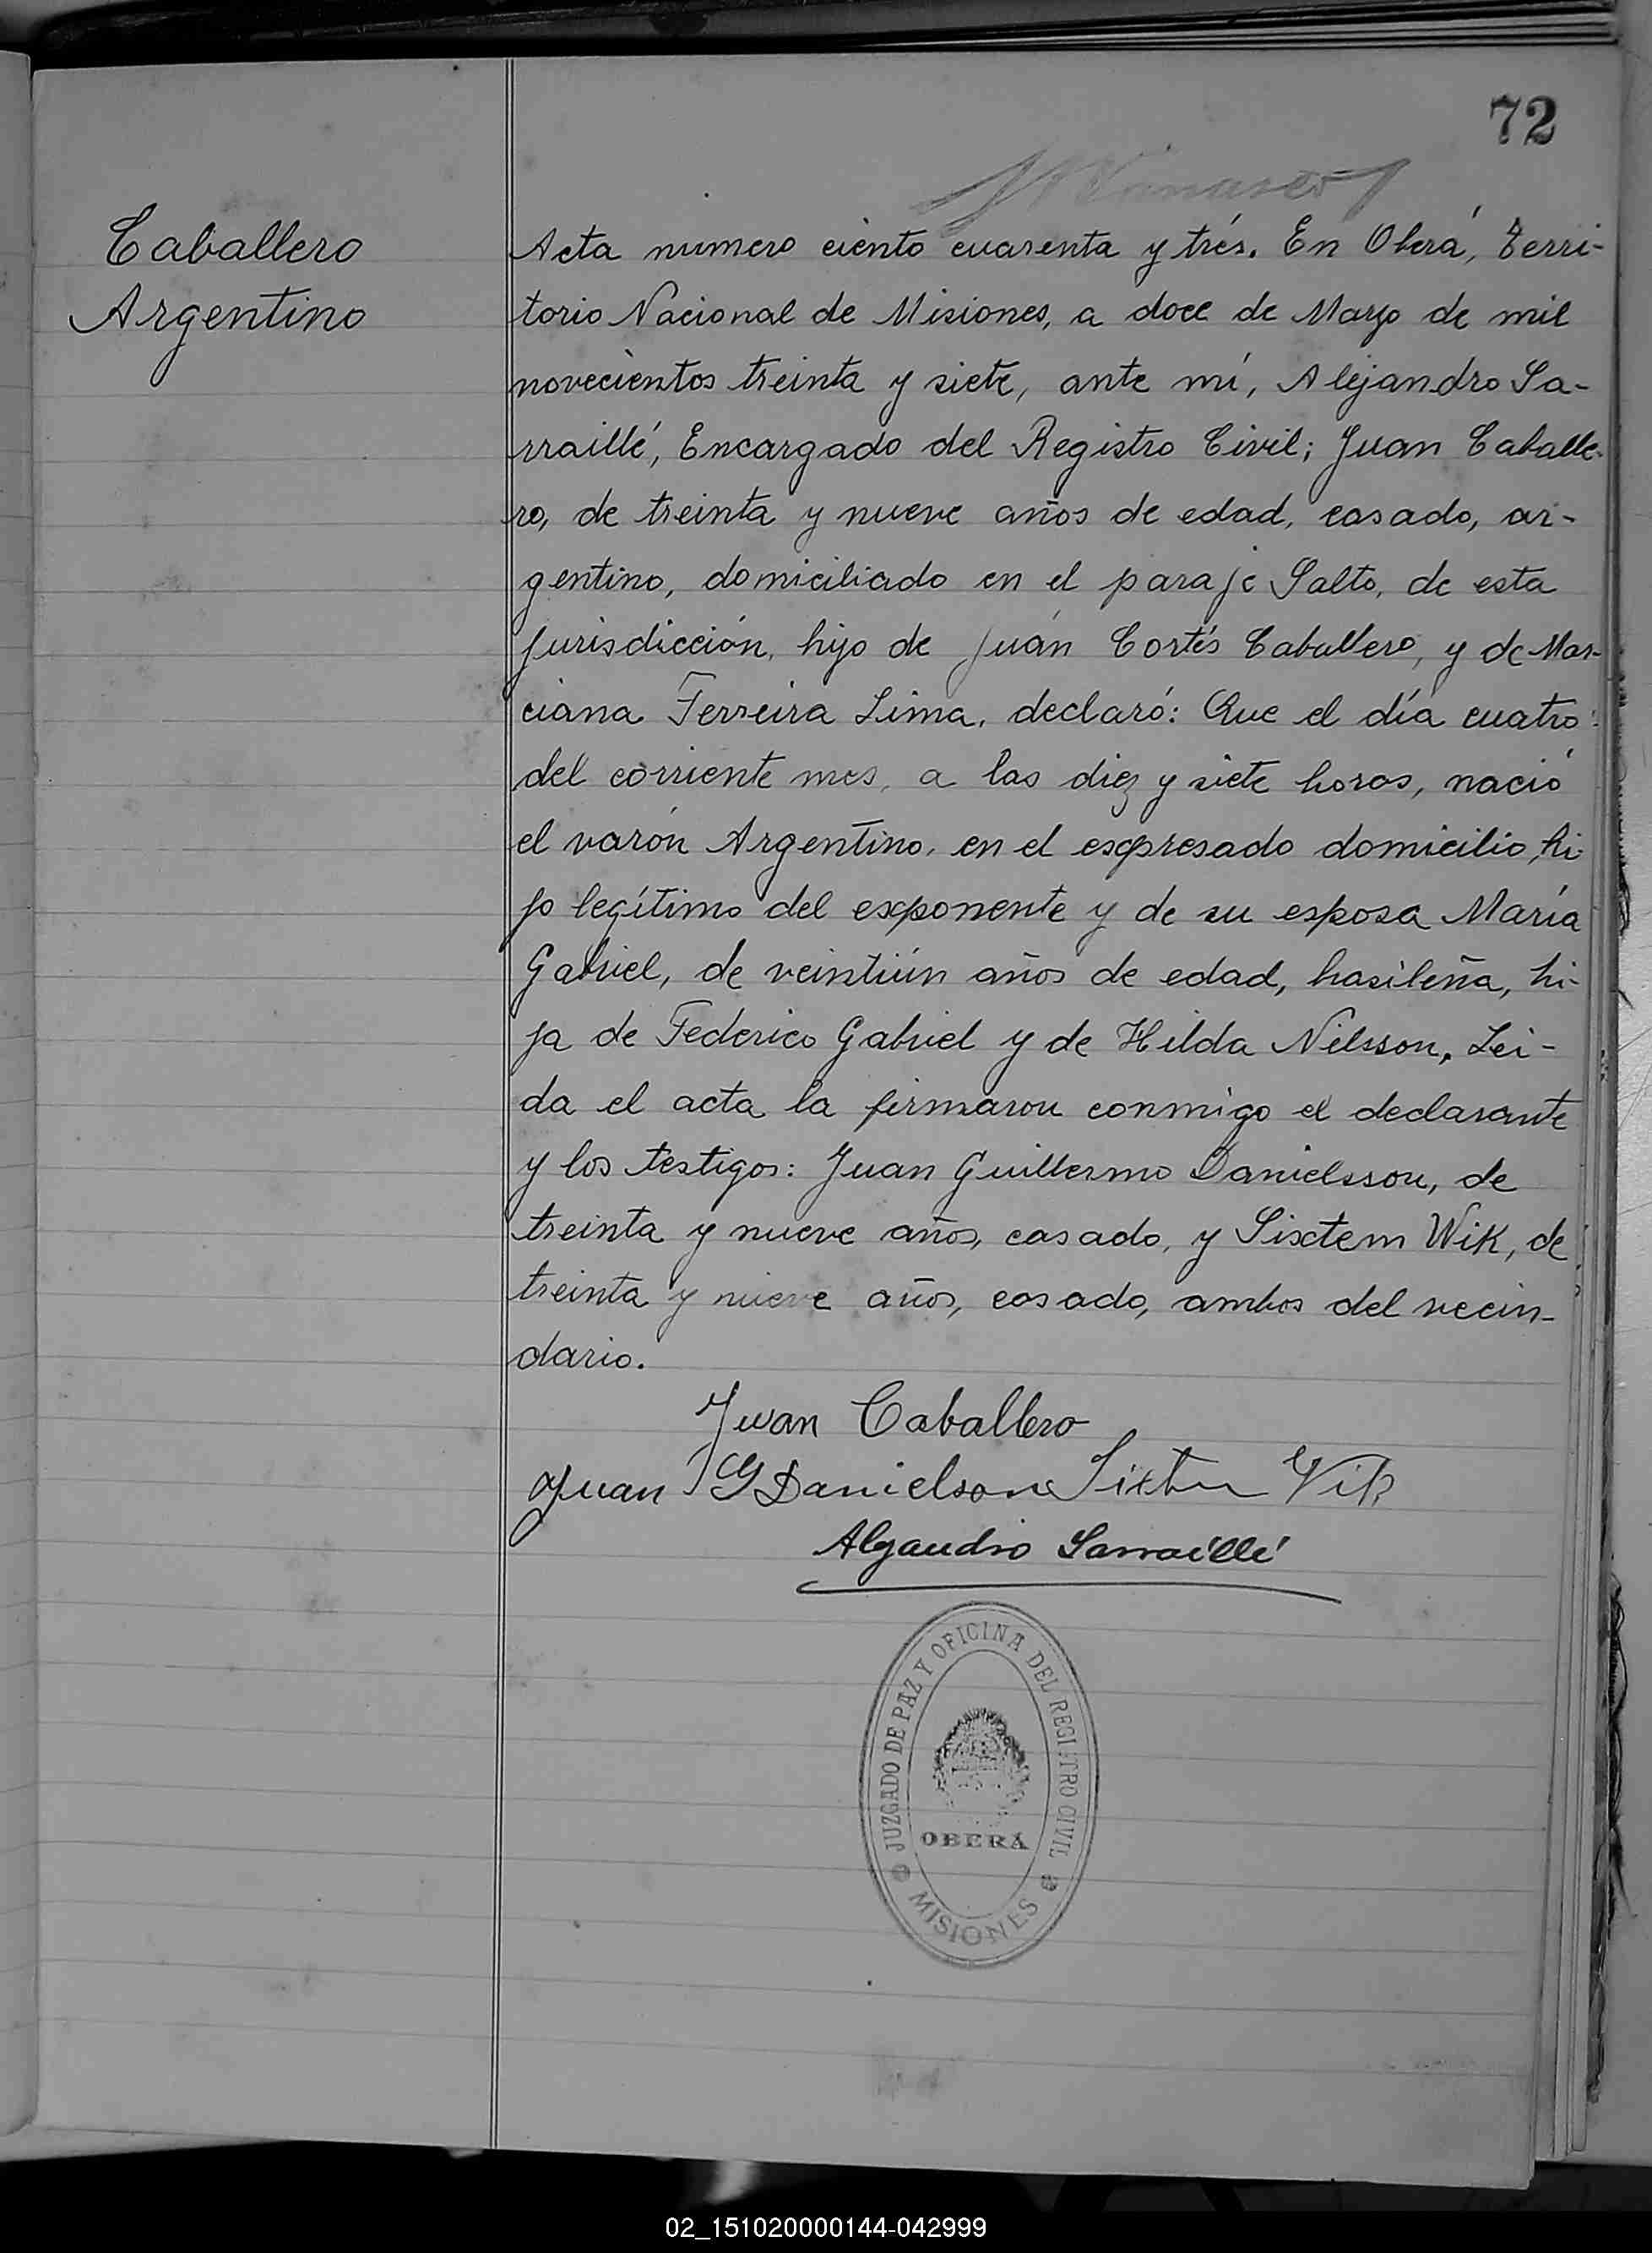 72
Caballero
Argentino
Acta número ciento cuarenta y trés. En Oberá, Terri-
torio Nacional de Misiones, a doce de Marzo de mil
novecientos treinta y siete, ante mí, Alejandro Sa-
rraillé, Encargado del Registro Civil; Juan Caballe-
ro, de treinta y nueve años de edad, casado, ar-
gentino, domiciliado en el paraje Salto, de esta
jurisdicción, hijo de Juán Cortés Caballero, y de Mar-
ciana Ferreira Lima, declaró: Que el día cuatro
del corriente mes, a las diez y siete horas, nació
el varón Argentino, en el expresado domicilio, hi-
jo legítimo del exponente y de su esposa María
Gabriel, de veintiún años de edad, brasileña, hi-
ja de Federico Gabriel y de Hilda Nilsson. Lei-
da el acta la firmaron conmigo el declarante
y los testigos: Juan Guillermo Danielsson, de
treinta y nueve años, casado, y Sixtem Wik, de
treinta y nueve años, casado, ambos del vecin-
dario.
Juan Caballero
Juan G Danielson Sixten Vik
Alejandro Sarraillé
JUZGADO DE PAZ Y OFICINA DEL REGISTRO CIVIL
OBERÁ
MISIONES
02_151020000144-042999